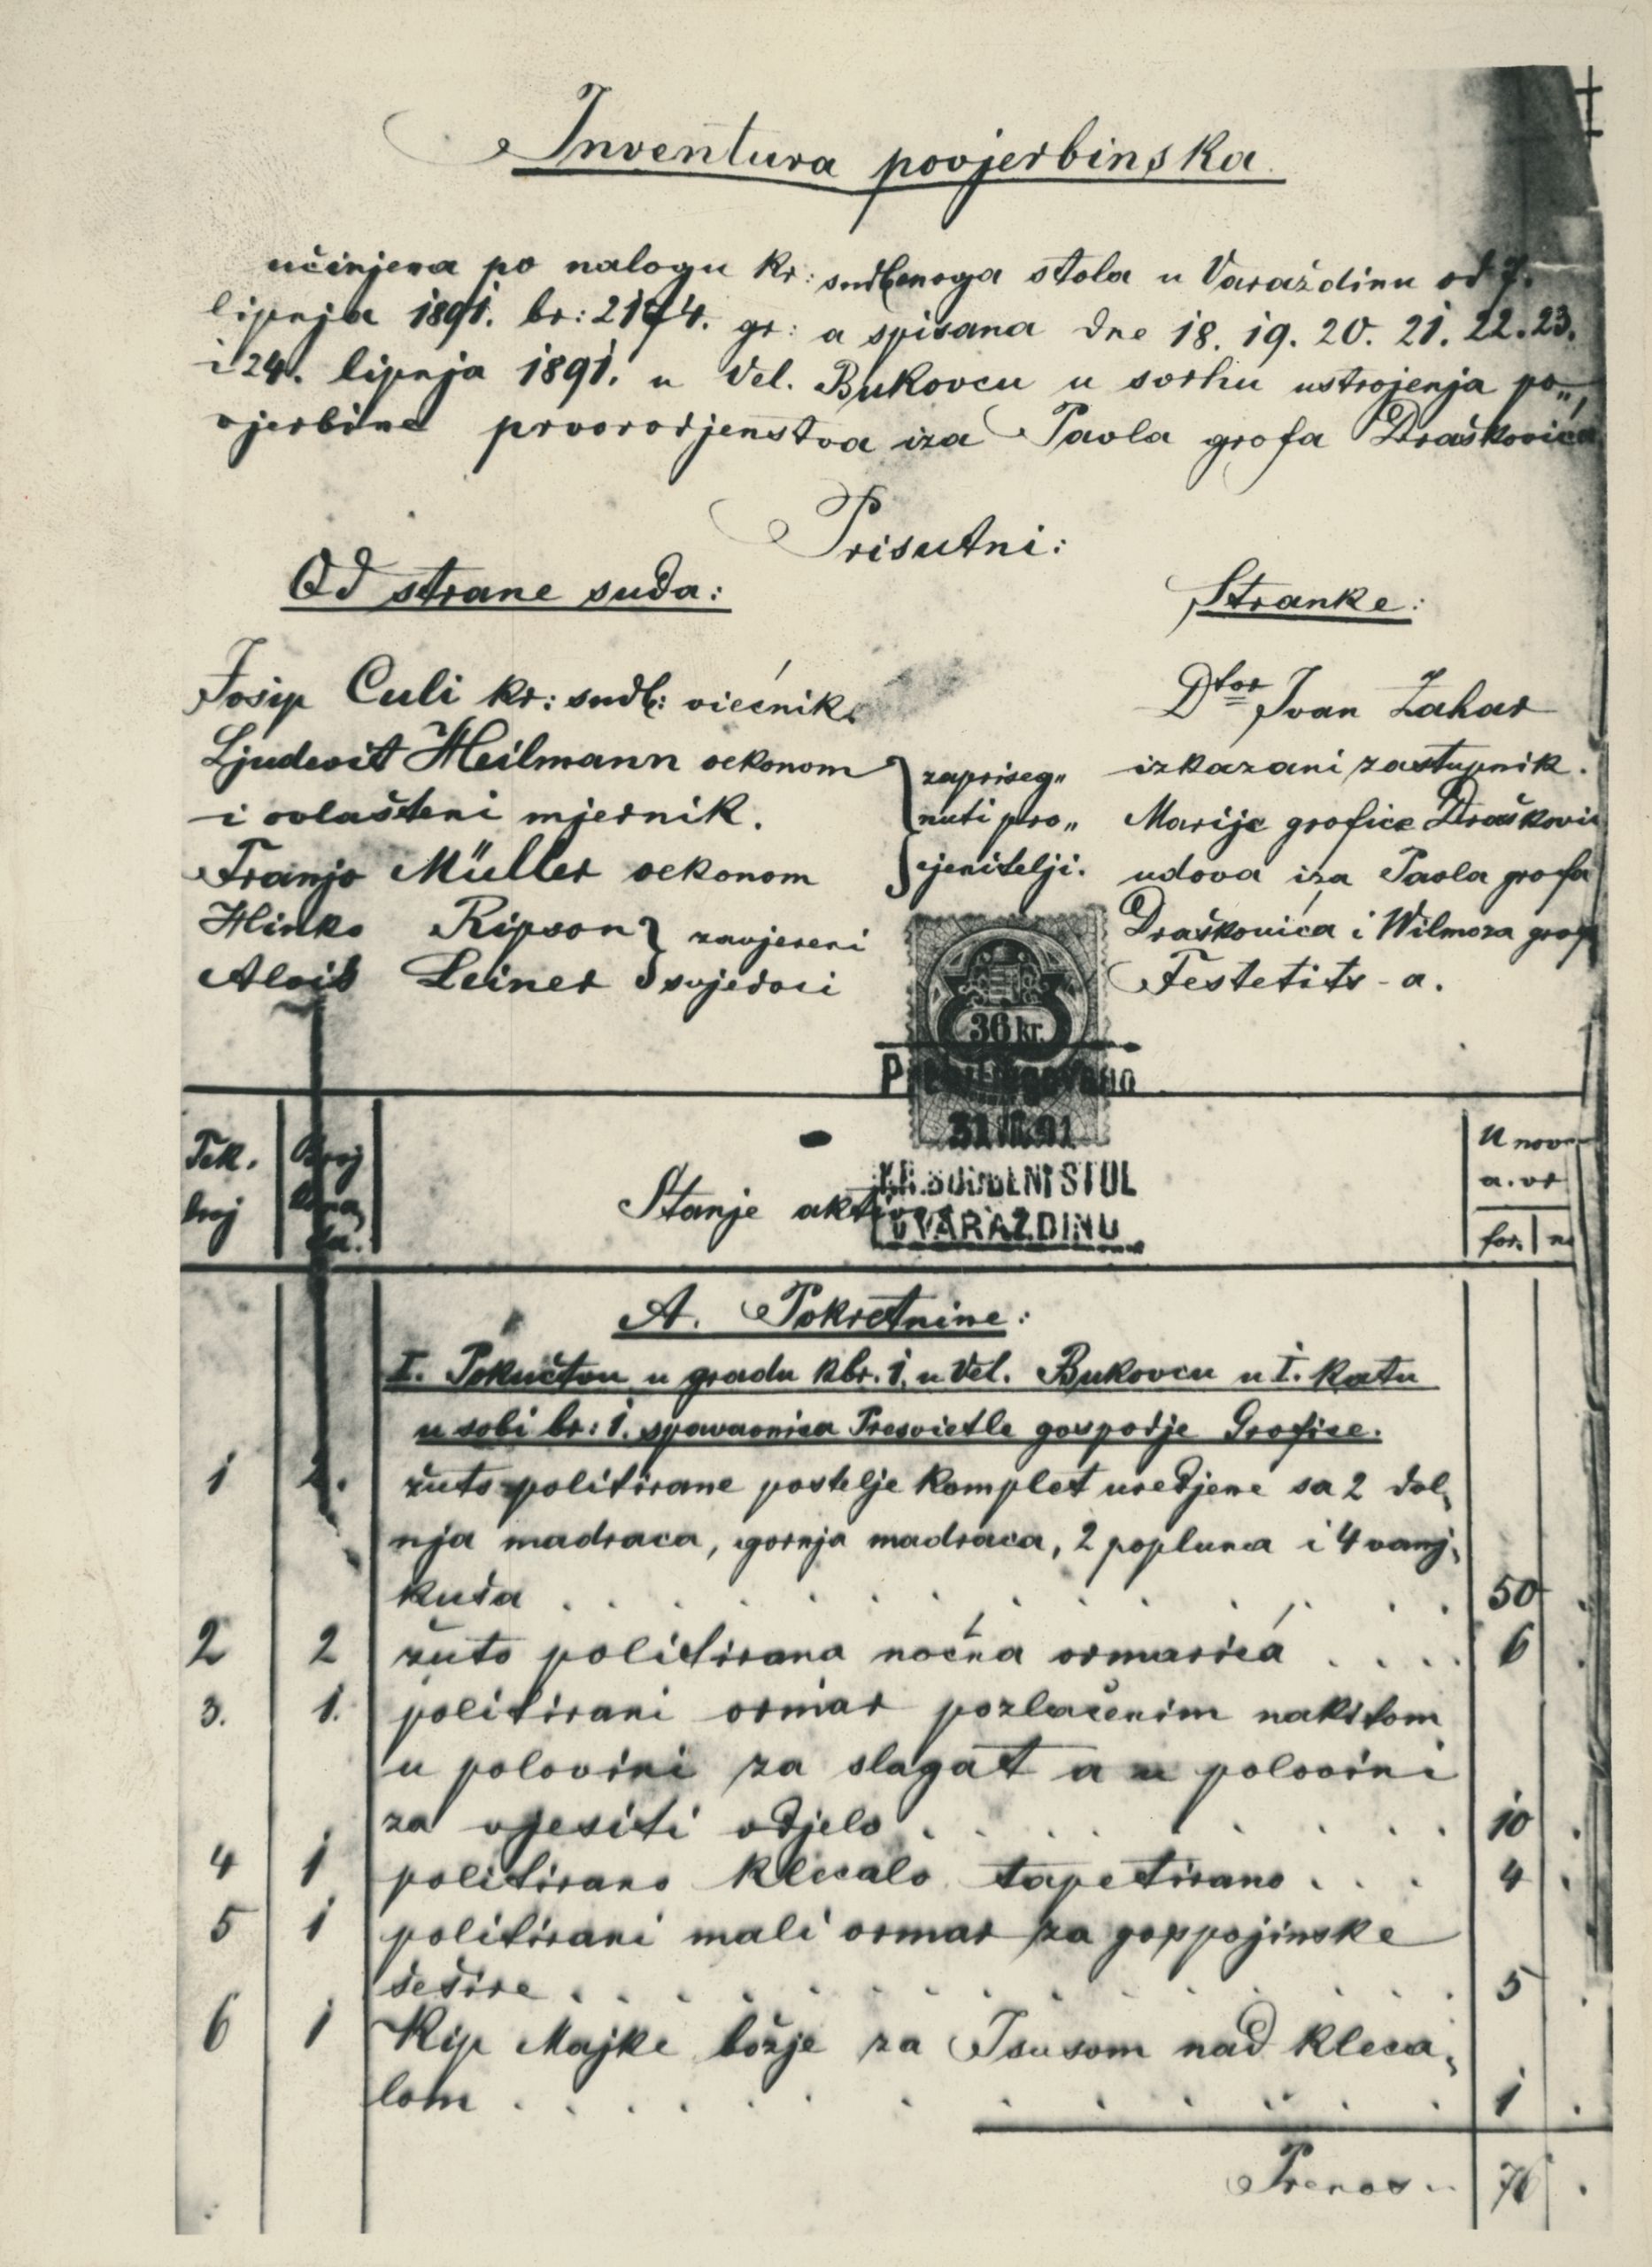 Inventura povjerbinska
učinjena po nalogu kr: sudbenoga stola u Varaždinu od 7.
lipnja 1891. br: 2174. gr: a spisana dne 18. 19. 20. 21. 22. 23.
i 24. lipnja 1891. u Vel. Bukovcu u svrhu ustrojenja po„
vjerbine prvorodjenstva iza Pavla grofa Draškovića
Prisutni:
Od strane suda:
Stranke:
Josip Culi kr: sudb: viećnik.
Ljudevit Heilmann oekonom
i ovlašteni mjernik.
Franjo Müller oekonom
zapriseg„
nuti pro„
cjenitelji.
Hinko Ripson
Alois Leiner
zavjereni
svjedoci
Dtor Ivan Zahar
izkazani zastupnik.
Marije grofice Drašković
udova iza Pavla grofa
Draškovića i Wilmoza grofa
Festetits-a.
36 kr.
31 91
KR. SUDBENI STOL
U VARAŽDINU
Tek. broj
Broj koma, da.
Stanje aktivno
U nov
a. vr
for. | n
A. Pokretnine:
I. Pokućtvu u gradu kbr. 1. u Vel. Bukovcu u I. katu
u sobi br: 1. spavaonica Presvietle gospodje Grofice.
1 2. žuto politirane postelje komplet uredjene sa 2 dol,
nja madraca, gornja madraca, 2 popluna i 4 vanj,
kuša . . . . . . . . . . . . . 50 .
2 2 žuto politirana noćna ormarića . . . . 6 .
3. 1. politirani ormar pozlaćenim nakitom
u polovini za slagat a u polovini
za vjesiti odjelo . . . . . . . . . 10 .
4 1 politirano klecalo tapetirano . . . 4 .
5 1 politirani mali ormar za gospojinske
šešire . . . . . . . . . . . . . 5 .
6 1 Kip Majke božje za Isusom nad kleca,
lom . . . . . . . . . . . . 1 .
Prenos .. 76 .